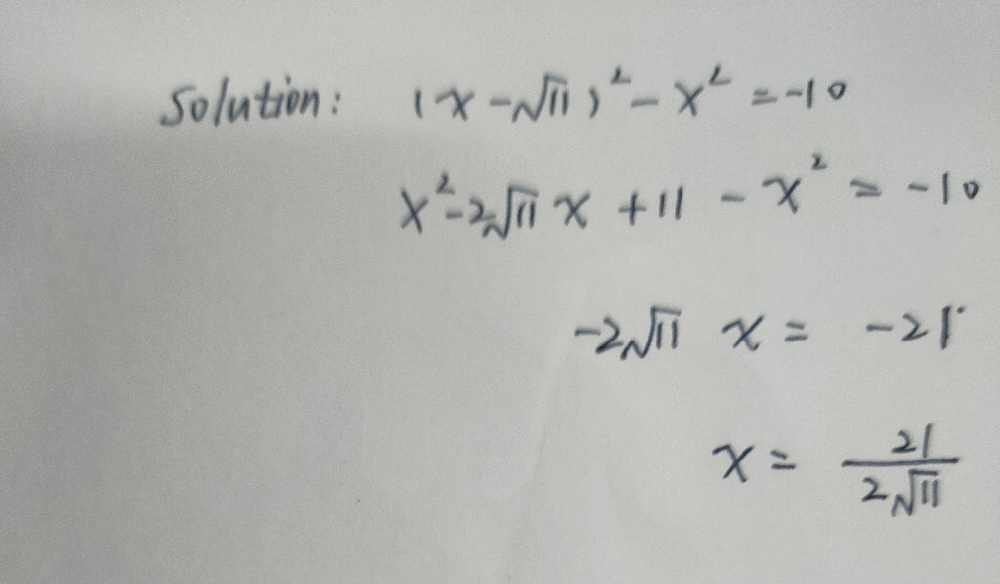 Solution: (x-√11)²-x²=-10
x²-2√11 x+11-x²=-10
-2√11 x=-21
x=21/2√11